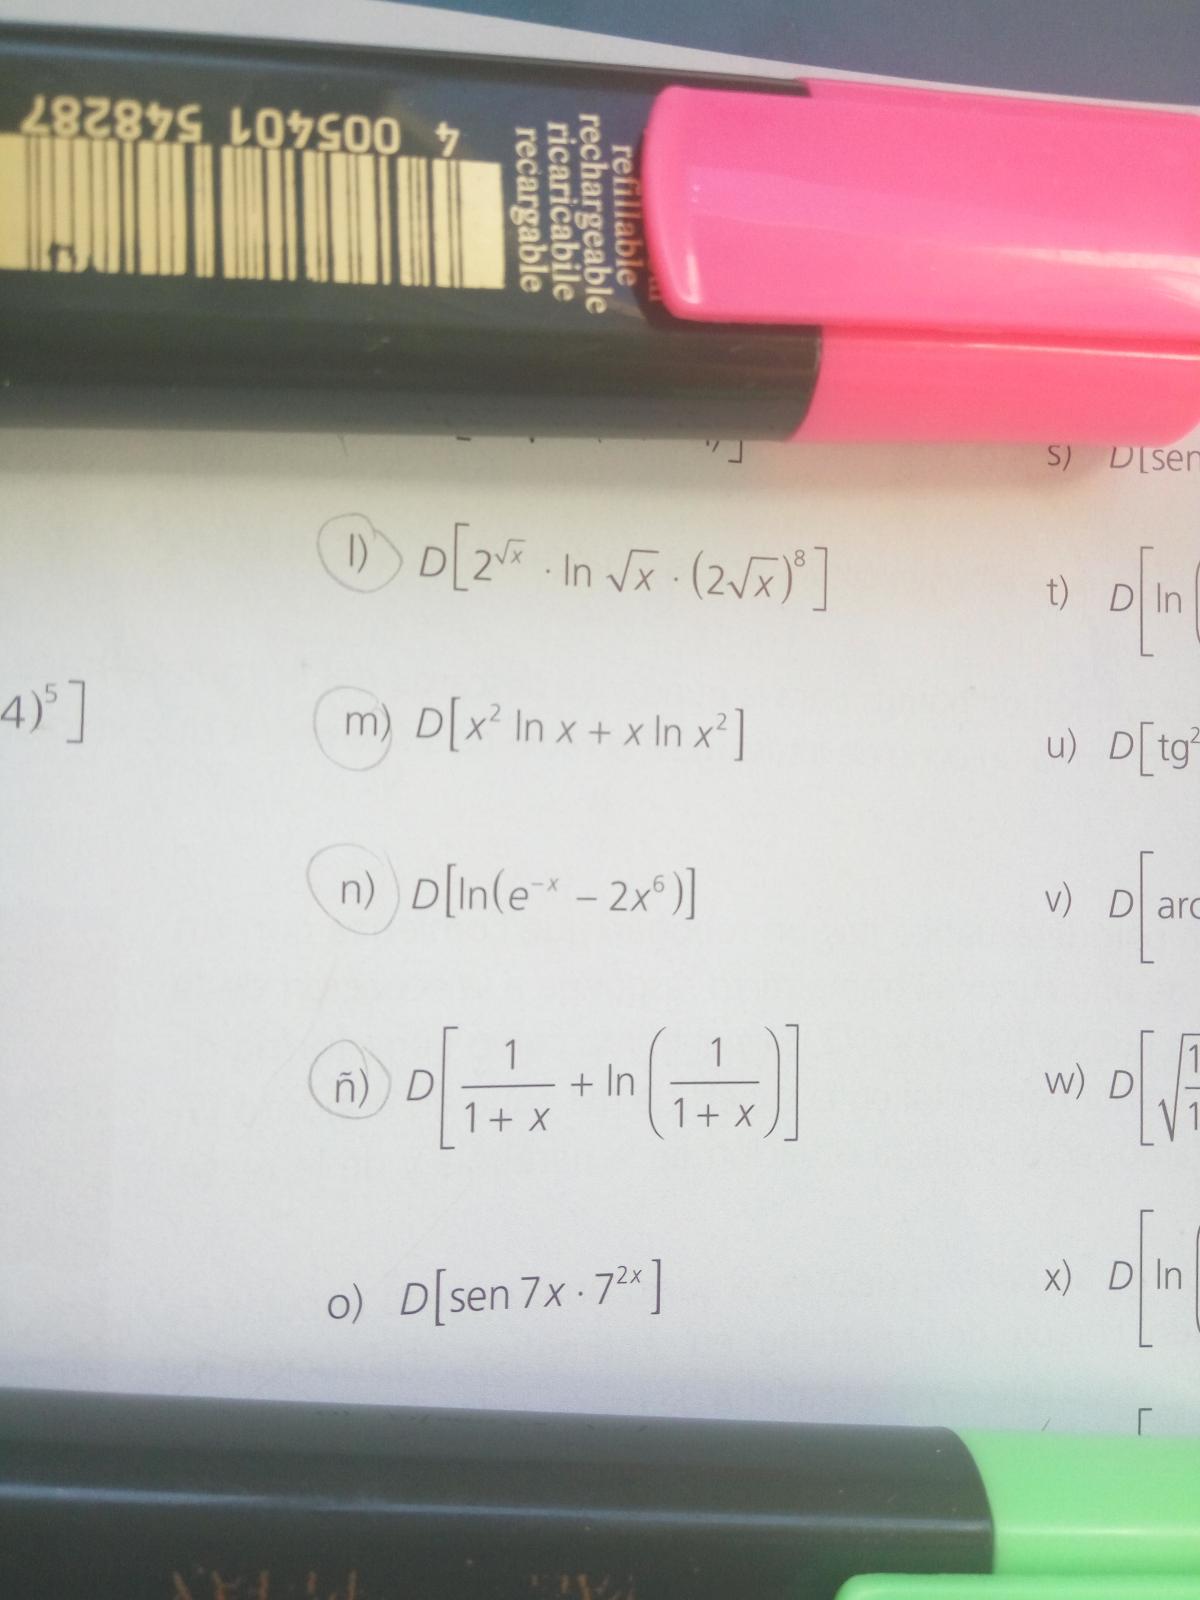 4 005401 548287
refillable
rechargeable
ricaricabile
recargable
s) D[sen
l) D[2^√x · ln √x · (2√x)^8]
t) D[ln (
4)^5]
m) D[x² ln x + x ln x²]
u) D[tg²
n) D[ln(e^−x − 2x^6)]
v) D[arc
ñ) D[1/(1 + x) + ln(1/(1 + x))]
w) D[√1/1
o) D[sen 7x · 7^2x]
x) D[ln (